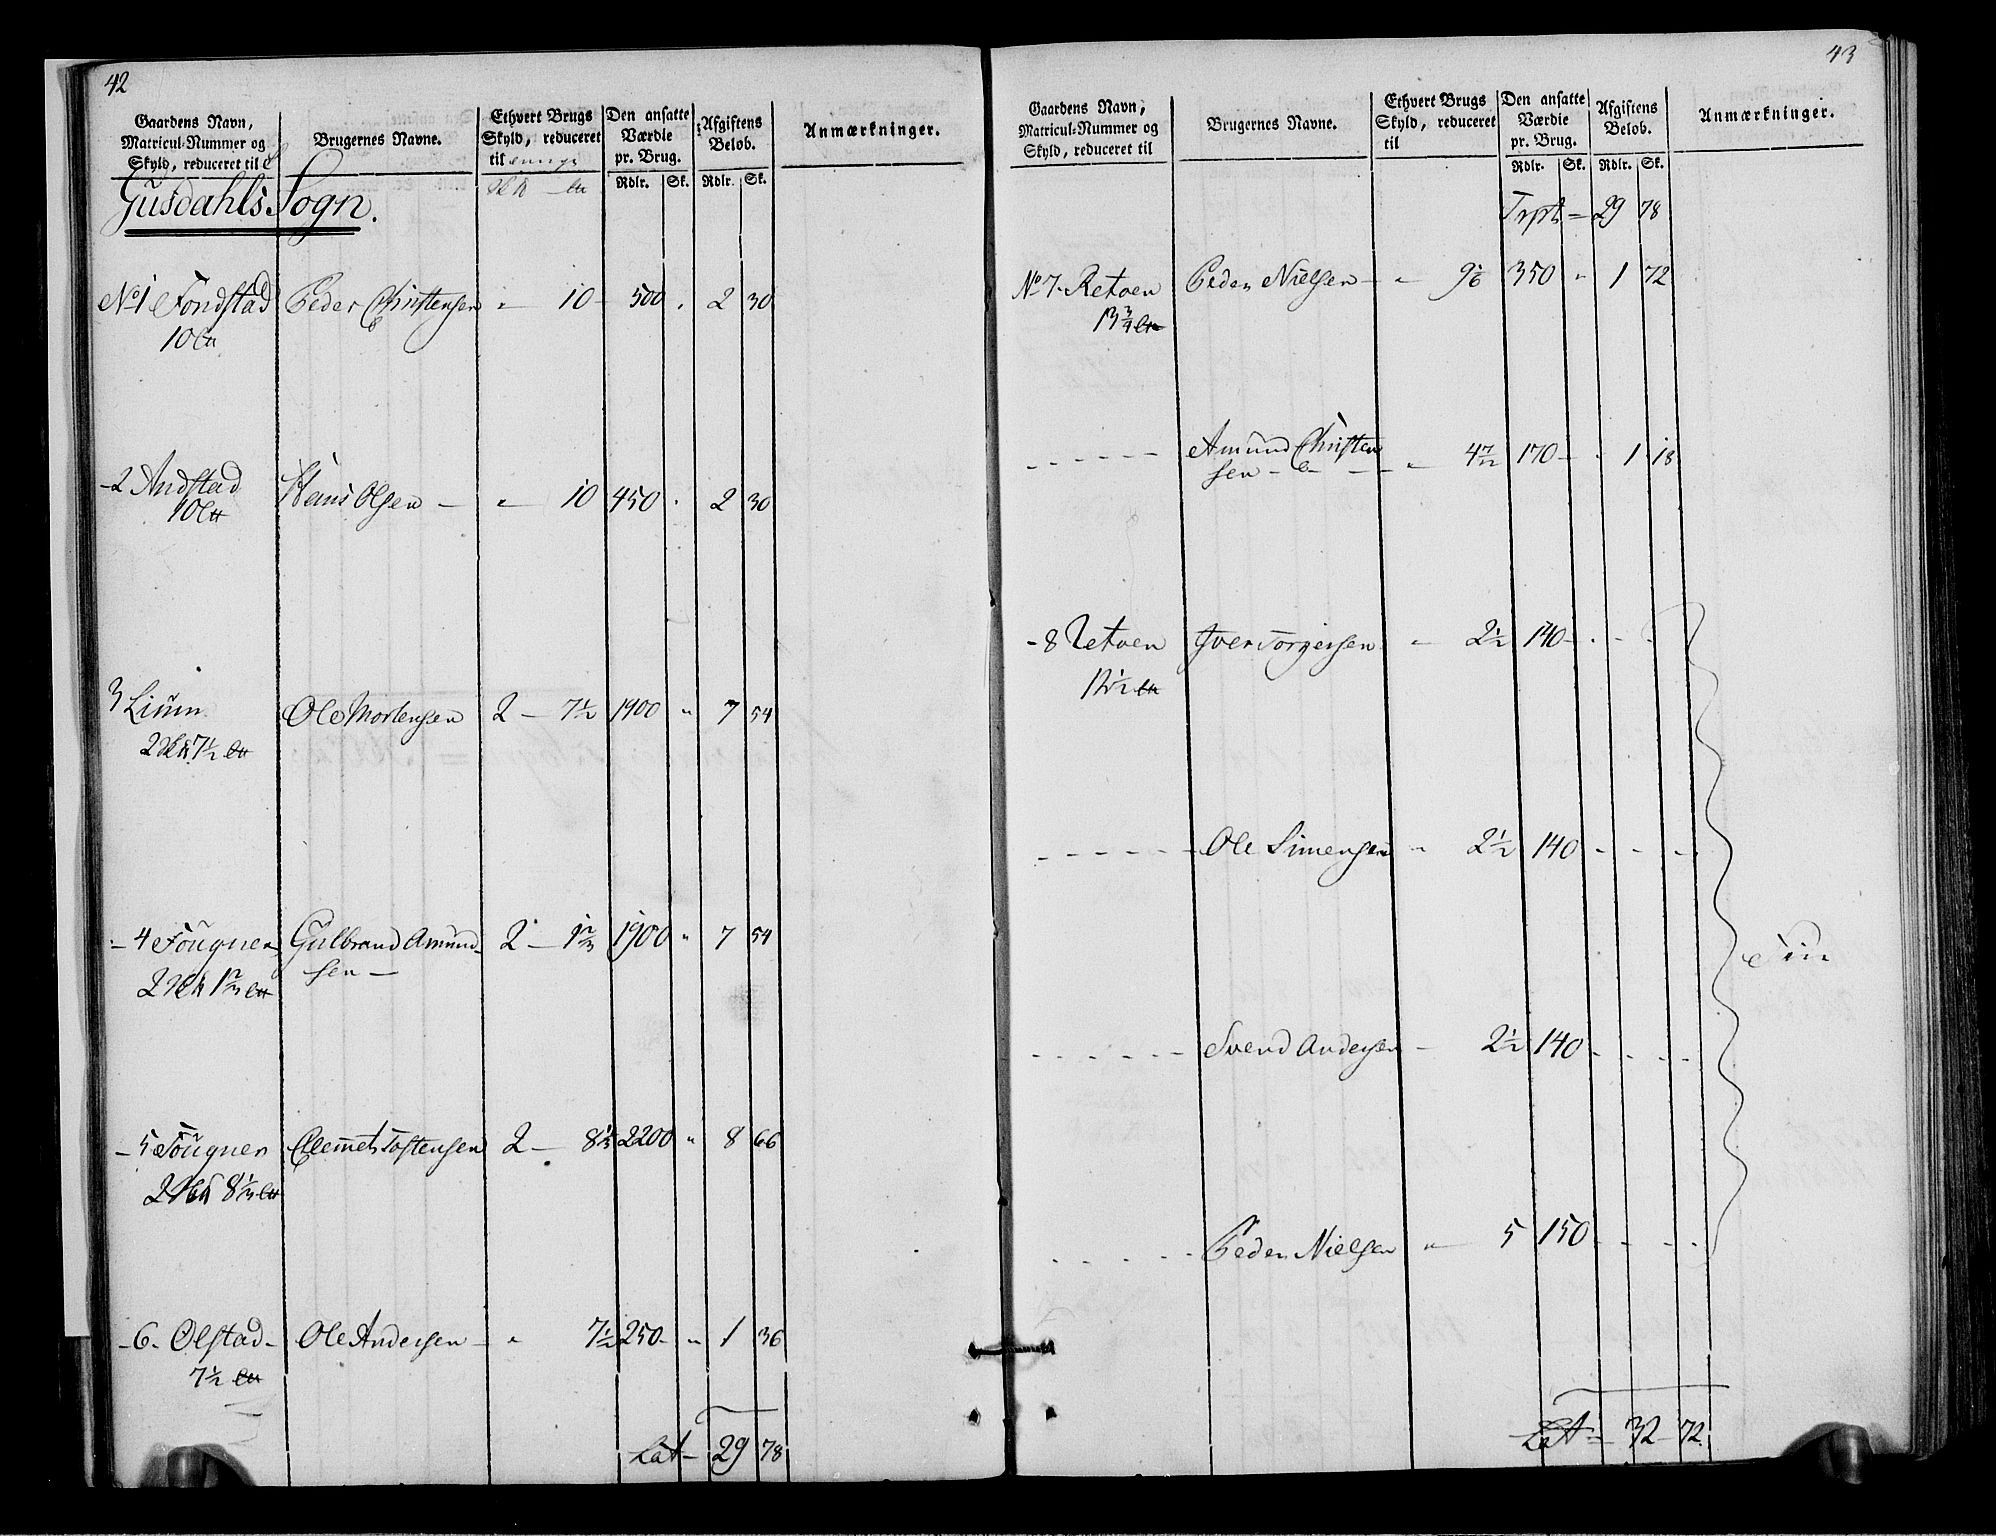 42
Gaardens Navn, Matricul-Nummer og Skyld, reduceret til
Brugernes Navne.
Ethvert Brugs Skyld, reduceret til
Den ansatte Værdie pr. Brug.
Afgiftens Beløb.
Anmærkninger.
Rdlr. Sk. Rdlr. Sk.
Gusdahls Sogn.
No 1 Fondstad Peder Christensen " 10 - 500 " 2 30
10 L
- 2 Andstad Hans Olsen - " 10 450 " 2 30
10 L
3 Liium Ole Mortensen 2 - 7½ 1900 " 7 54
2 7½
- 4 Fougner Gulbrand Amund- 2 - 1⅔ 1900 " 7 54
sen -
2 1⅔
- 5 Fougner Clemet Tostensen 2 - 8⅓ 2200 " 8 66
2 8⅓
- 6 - Ølstad - Ole Andersen - " 7½ 250 - " 1 36
7½
Lat - 29 78
43
Gaardens Navn, Matricul-Nummer og Skyld, reduceret til
Brugernes Navne.
Ethvert Brugs Skyld, reduceret til
Den ansatte Værdie pr. Brug.
Afgiftens Beløb.
Anmærkninger.
Rdlr. Sk. Rdlr. Sk.
Trpt = 29 78
No 7 - Retven Peder Nielsen - " 9⅙ 350 " 1 72
13¾
- - - - - - Amund Christen
sen - - - " 4 7/12 170 - " 1 18
- 8 Retven Iver Torgersen " 2½ 140 - - - -
12½
- - - - - - Ole Simensen " 2½ 140 - - - -
- - - - - - Svend Andersen - 2½ 140 - - - -
Frie
- - - - - Peder Nielsen " 5 150 - - - -
Lat - 32 - 72